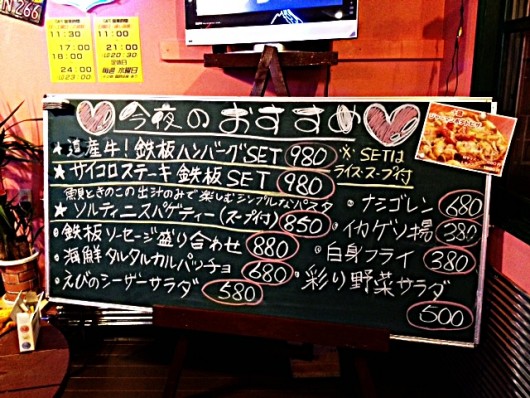 N 266
11:30
11:00
17:00
21:00
18:00
L.O 20:30
24:00
定休日
L.O 23:00
毎週水曜日
今夜のおすすめ
★道産牛!鉄板ハンバーグSET 980
※SETは
ライス・スープ付
★サイコロステーキ鉄板SET 980
魚貝ときのこの出汁のみで楽しむシンプルなパスタ
★ソルティニスパゲティー(スープ付) 850
・鉄板ソーセージ盛り合わせ 880
・海鮮タルタルカルパッチョ 680
・えびのシーザーサラダ 580
・ナシゴレン 680
・イカゲソ揚 380
・白身フライ 380
・彩り野菜サラダ
500